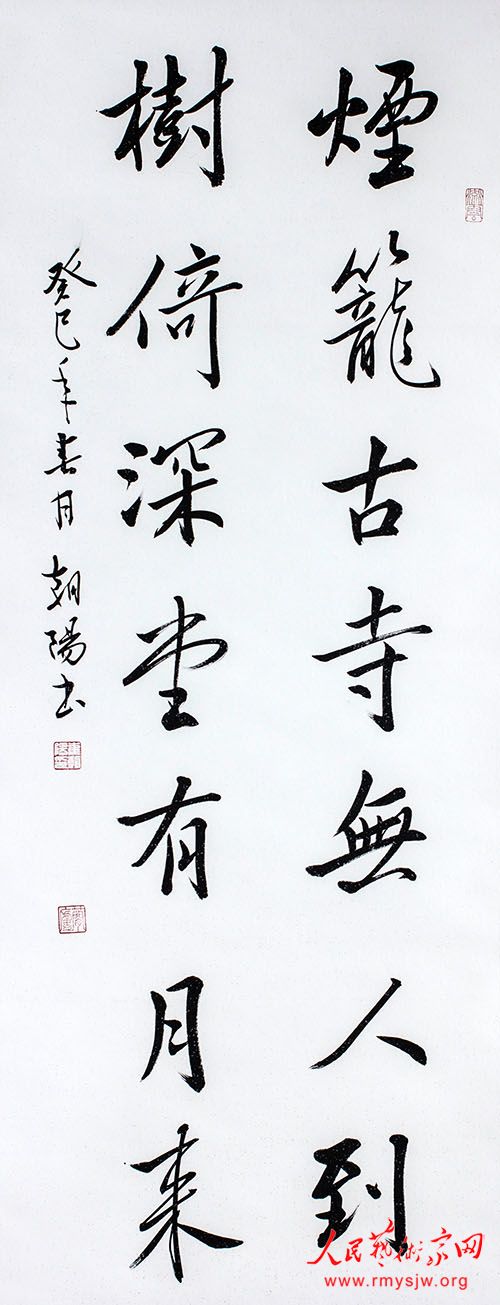 煙籠古寺無人到
樹倚深堂有月来
癸巳年春月 朝陽书
人民藝術家网
www.rmysjw.org